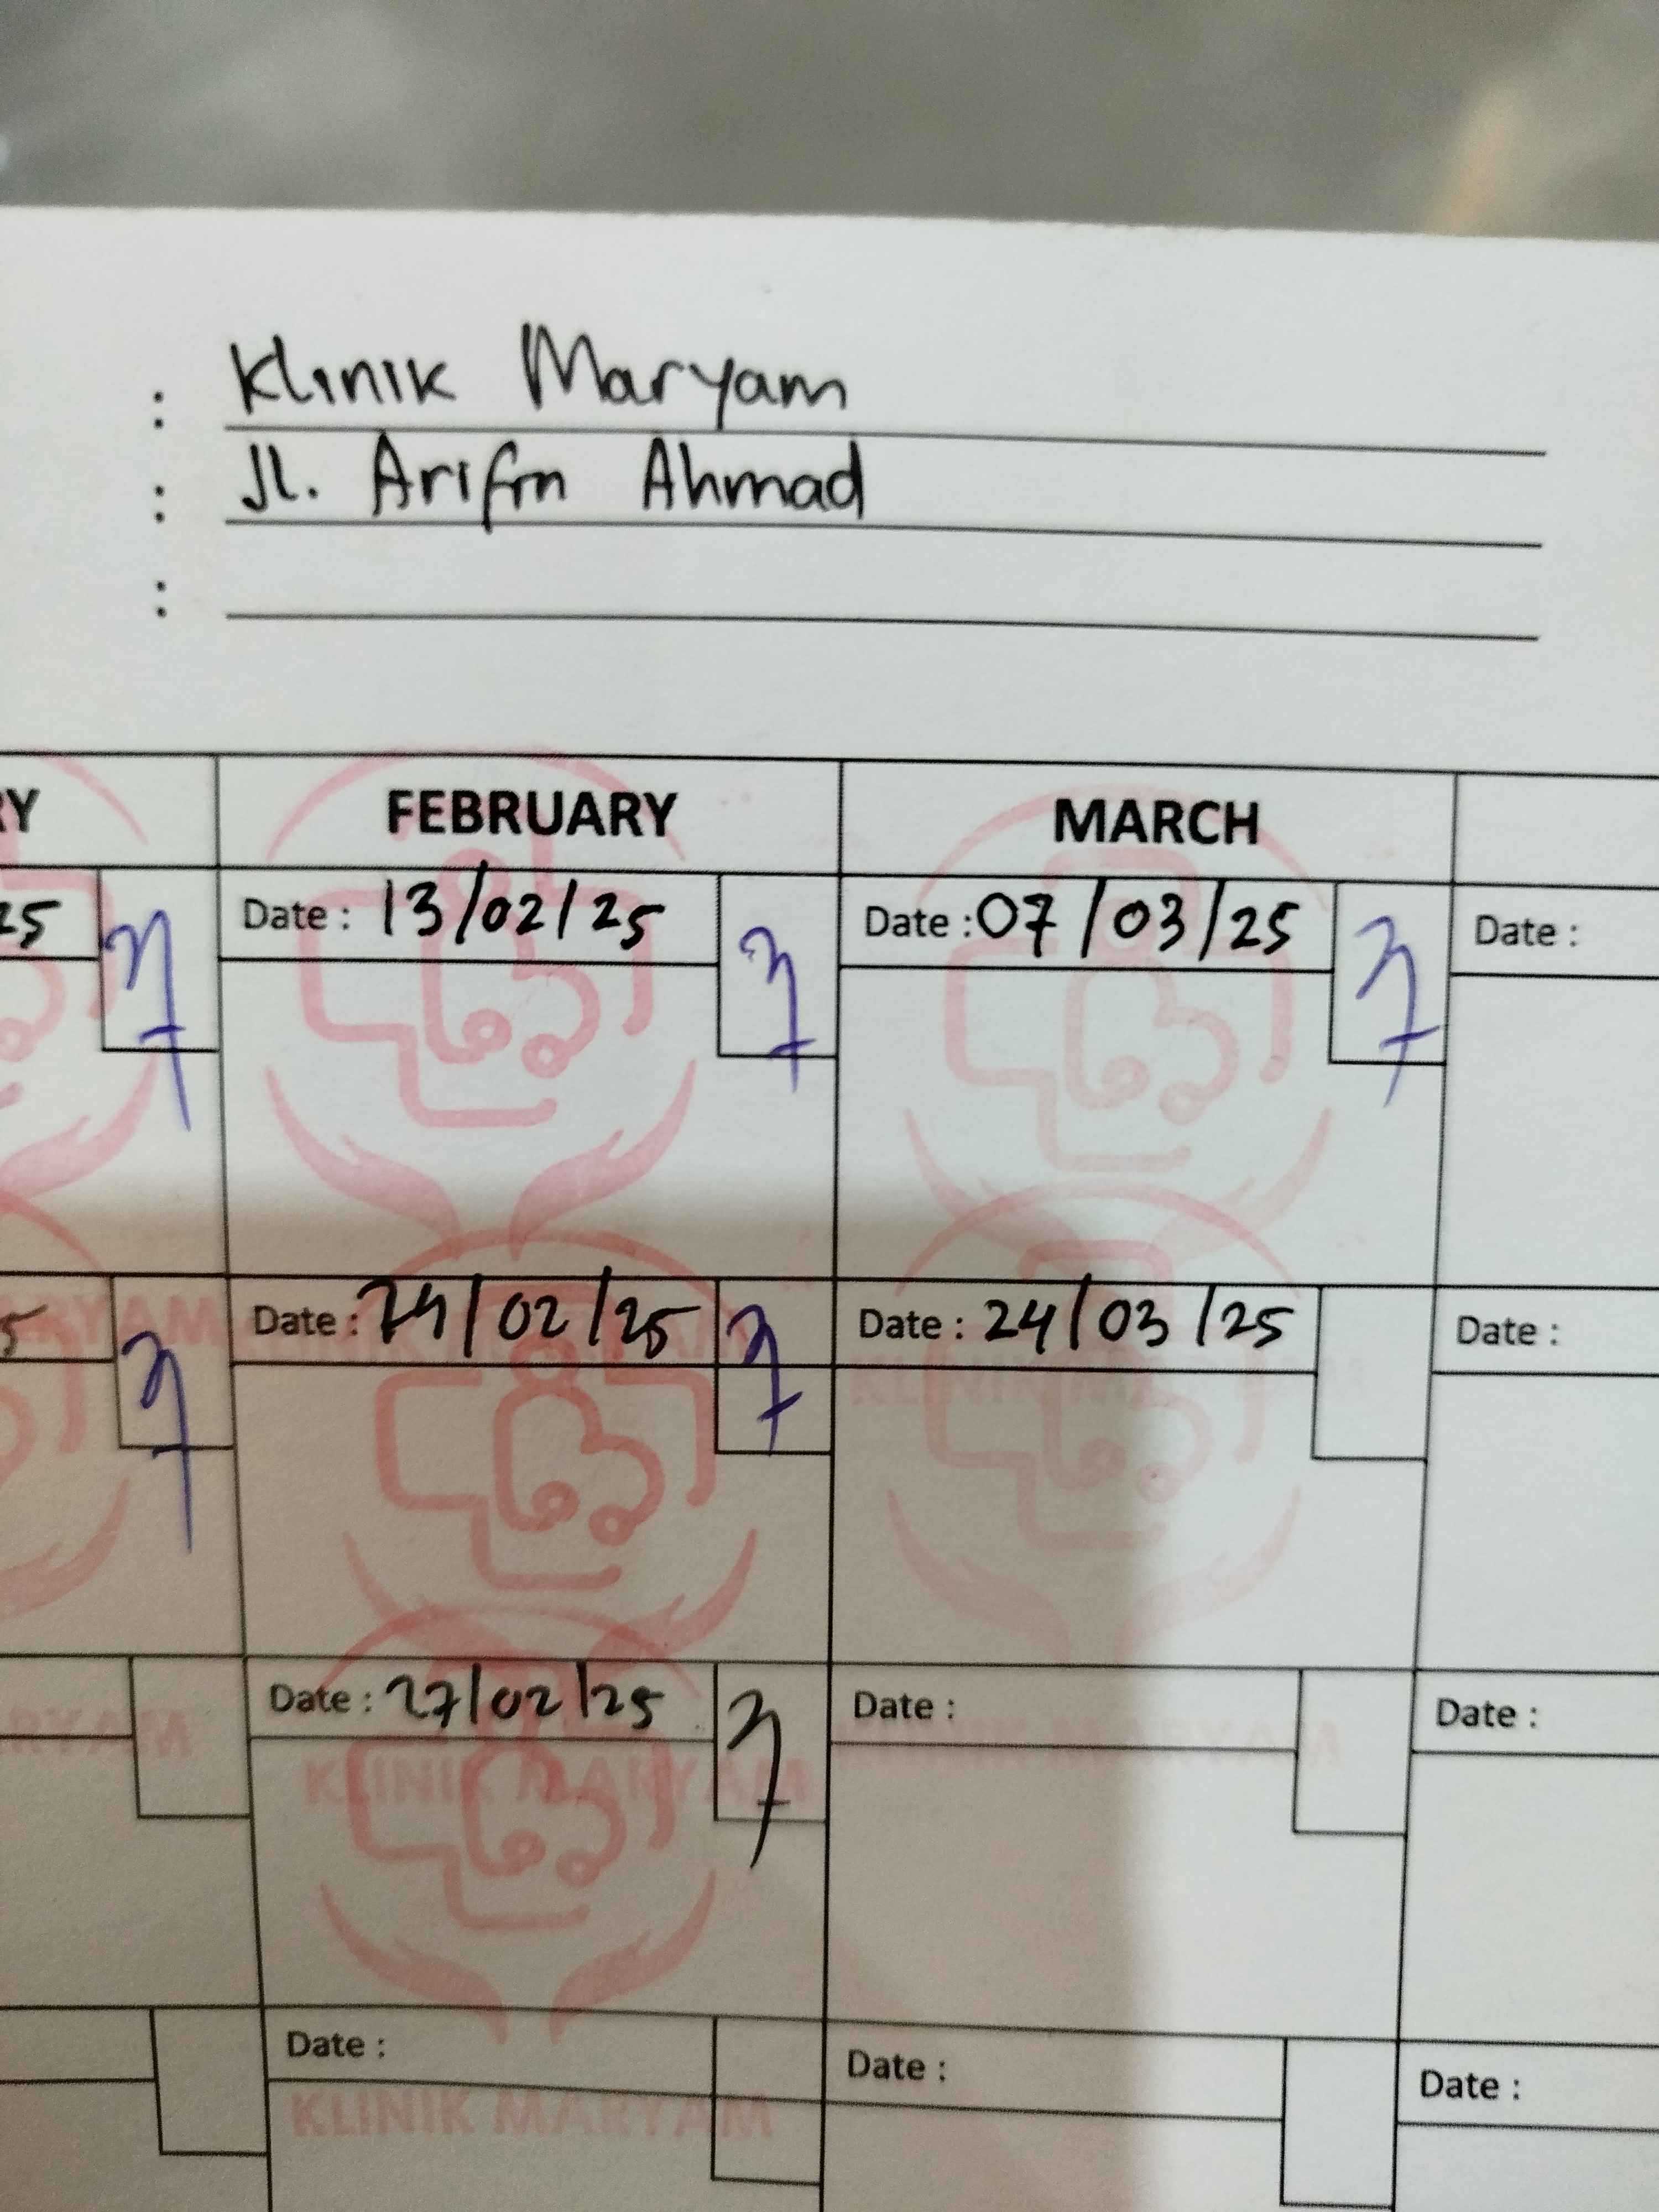 : Klinik Maryam
: Jl. Arifin Ahmad
:
RY FEBRUARY MARCH
25 Date : 13/02/25 Date : 07/03/25 Date :
5 Date : 24/02/25 Date : 24/03/25 Date :
ARYAM KLINIK MARYAM KLINIK
Date : 27/02/25 Date : Date :
ARYAM KLINIK MARYAM KLINIK MARYAM
Date : Date : Date :
KLINIK MARYAM